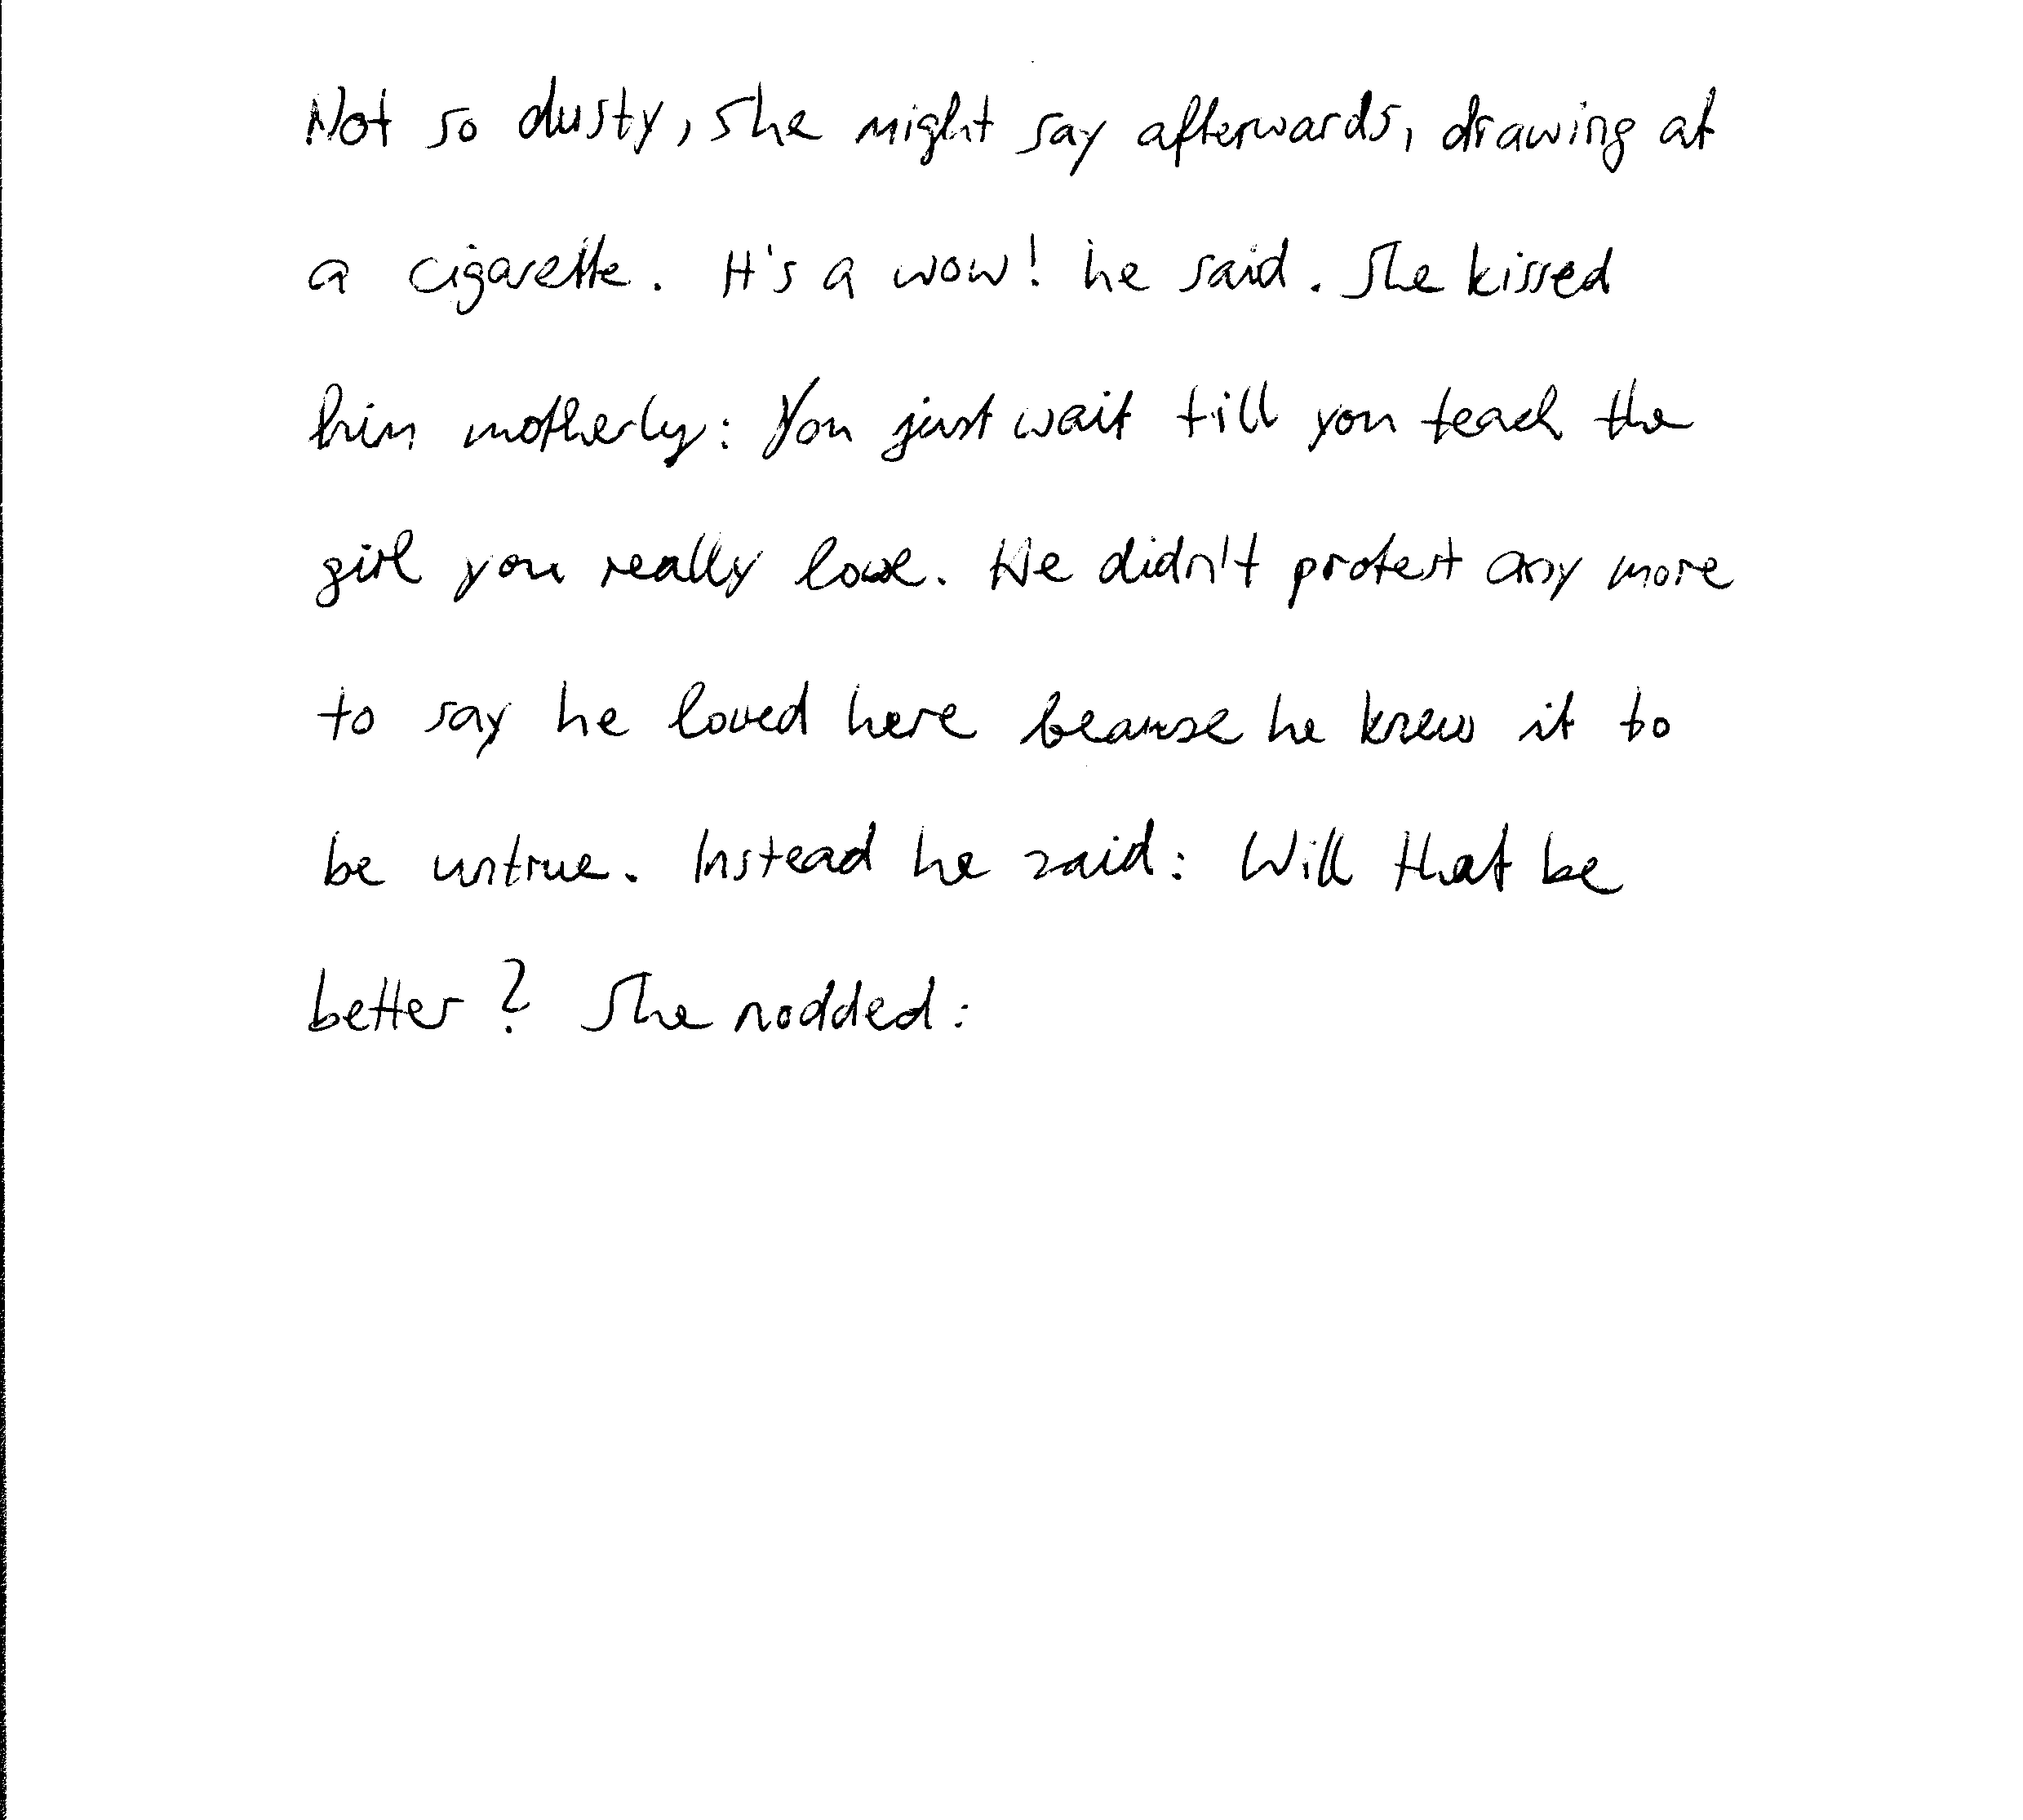 Not so dusty, she might say afterwards, drawing at
a cigarette. It's a wow! he said. She kissed
him motherly: You just wait till you teach the
girl you really love. He didn't protest any more
to say he loved here because he knew it to
be untrue. Instead he said: Will that be
better? She nodded: